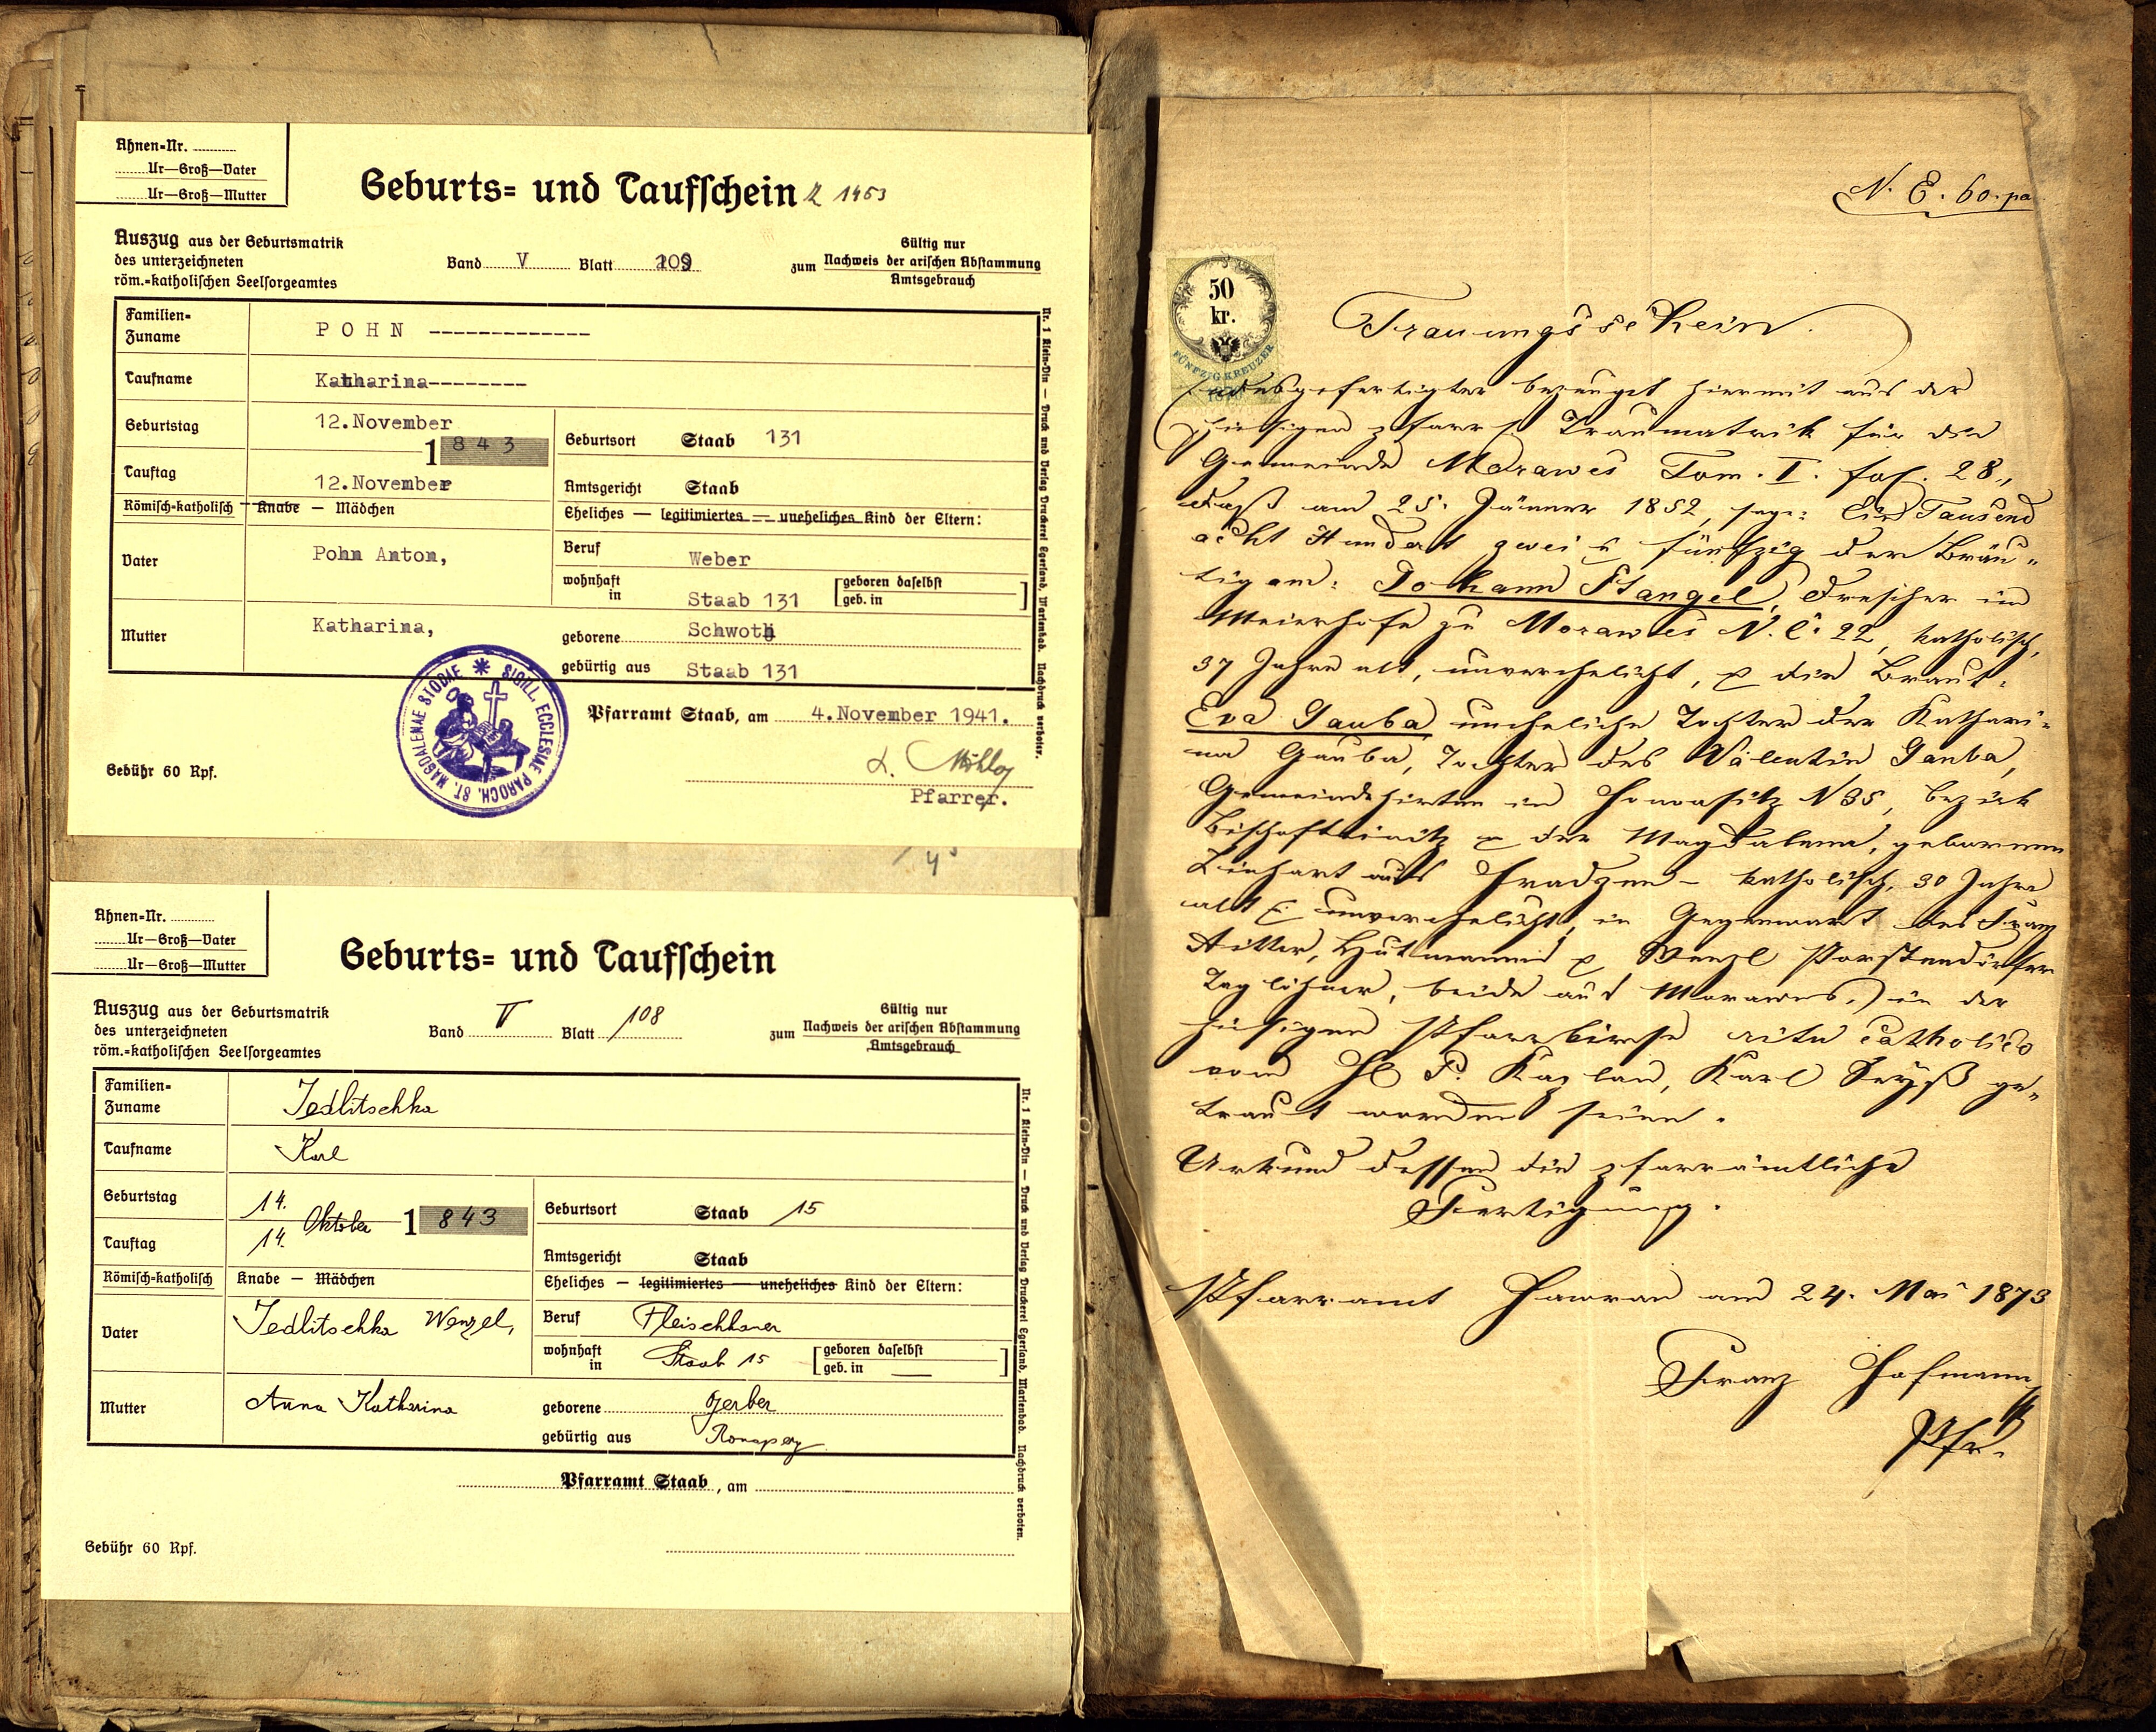 Ahnen-Nr.
Ur—Groß—Vater
Ur—Groß—Mutter
Geburts- und Taufschein
1453
Auszug aus der Geburtsmatrik
des unterzeichneten
röm.-katholischen Seelsorgeamtes
Band V Blatt 109
Gültig nur
zum Nachweis der arischen Abstammung
Amtsgebrauch
Familien-
Zuname
POHN -------------
Taufname Katharina--------
Geburtstag 12.November
1843
Geburtsort Staab 131
Tauftag 12.November
Amtsgericht Staab
Römisch-katholisch Knabe — Mädchen
Eheliches — legitimiertes — uneheliches Kind der Eltern:
Vater Pohn Anton,
Beruf Weber
wohnhaft
in Staab 131
geboren daselbst
geb. in
Mutter Katharina,
geborene Schwoth
gebürtig aus Staab 131
SIGILL. ECCLESIAE PAROCH. ST. MAGDALENAE STODAE
Pfarramt Staab, am 4.November 1941.
Gebühr 60 Rpf.
Pfarrer.
Nr. 1 Klein-Din — Druck und Verlag Druckerei Egerland, Marienbad. Nachdruck verboten.
Ahnen-Nr.
Ur—Groß—Vater
Ur—Groß—Mutter
Geburts- und Taufschein
Auszug aus der Geburtsmatrik
des unterzeichneten
röm.-katholischen Seelsorgeamtes
Band V Blatt 108
Gültig nur
zum Nachweis der arischen Abstammung
Amtsgebrauch
Familien-
Zuname
Jedlitschka
Taufname Karl
Geburtstag 14.
Oktober 1843
Geburtsort Staab 15
Tauftag 14.
Amtsgericht Staab
Römisch-katholisch Knabe — Mädchen
Eheliches — legitimiertes — uneheliches Kind der Eltern:
Vater Jedlitschka Wenzel,
Beruf Fleischhauer
wohnhaft
in Staab 15
geboren daselbst
geb. in —
Mutter Anna Katharina
geborene Gerber
gebürtig aus
Pfarramt Staab, am
Gebühr 60 Rpf.
Nr. 1 Klein-Din — Druck und Verlag Druckerei Egerland, Marienbad. Nachdruck verboten.
N. E. 60. pa
50
kr.
FÜNFZIG KREUZER
Trauungsschein.
Endesgefertigter bezeuget hiermit aus der
hiesigen pfarrl Traumatrik für die
Gemeinde Morawes Tom. I. fol. 28.,
daß am 25. Jänner 1852, sage: Ein Tausend
acht Hundert zwei u fünfzig der Bräu-
tigam: Johann Stangel, Drescher im
Meierhofe zu Morawes N. C. 22, katholisch,
37 Jahre alt, unverehelicht, & die Braut:
Eva Gauba uneheliche Tochter der Kathari-
na Gauba, Tochter des Valentin Gauba,
Gemeindehirten in N 35, Bezirk
Bischofteinitz & der Magdalena, gebornen
Linhart aus Hradzen - katholisch, 30 Jahre
alt & unverehelicht, in Gegenwart des Franz
Hutmanns & Wenzl Porstendörfer
Taglöhner, beide aus Morawes, in der
hiesigen Pfarrkirche ritu catholico
vom H P. Kaplan, Karl Seyß ge-
traut worden seien.
Urkund dessen die pfarrämtliche
Fertigung.
Pfarramt Hawran am 24. Mai 1873
Franz Hofmann
Pfr.